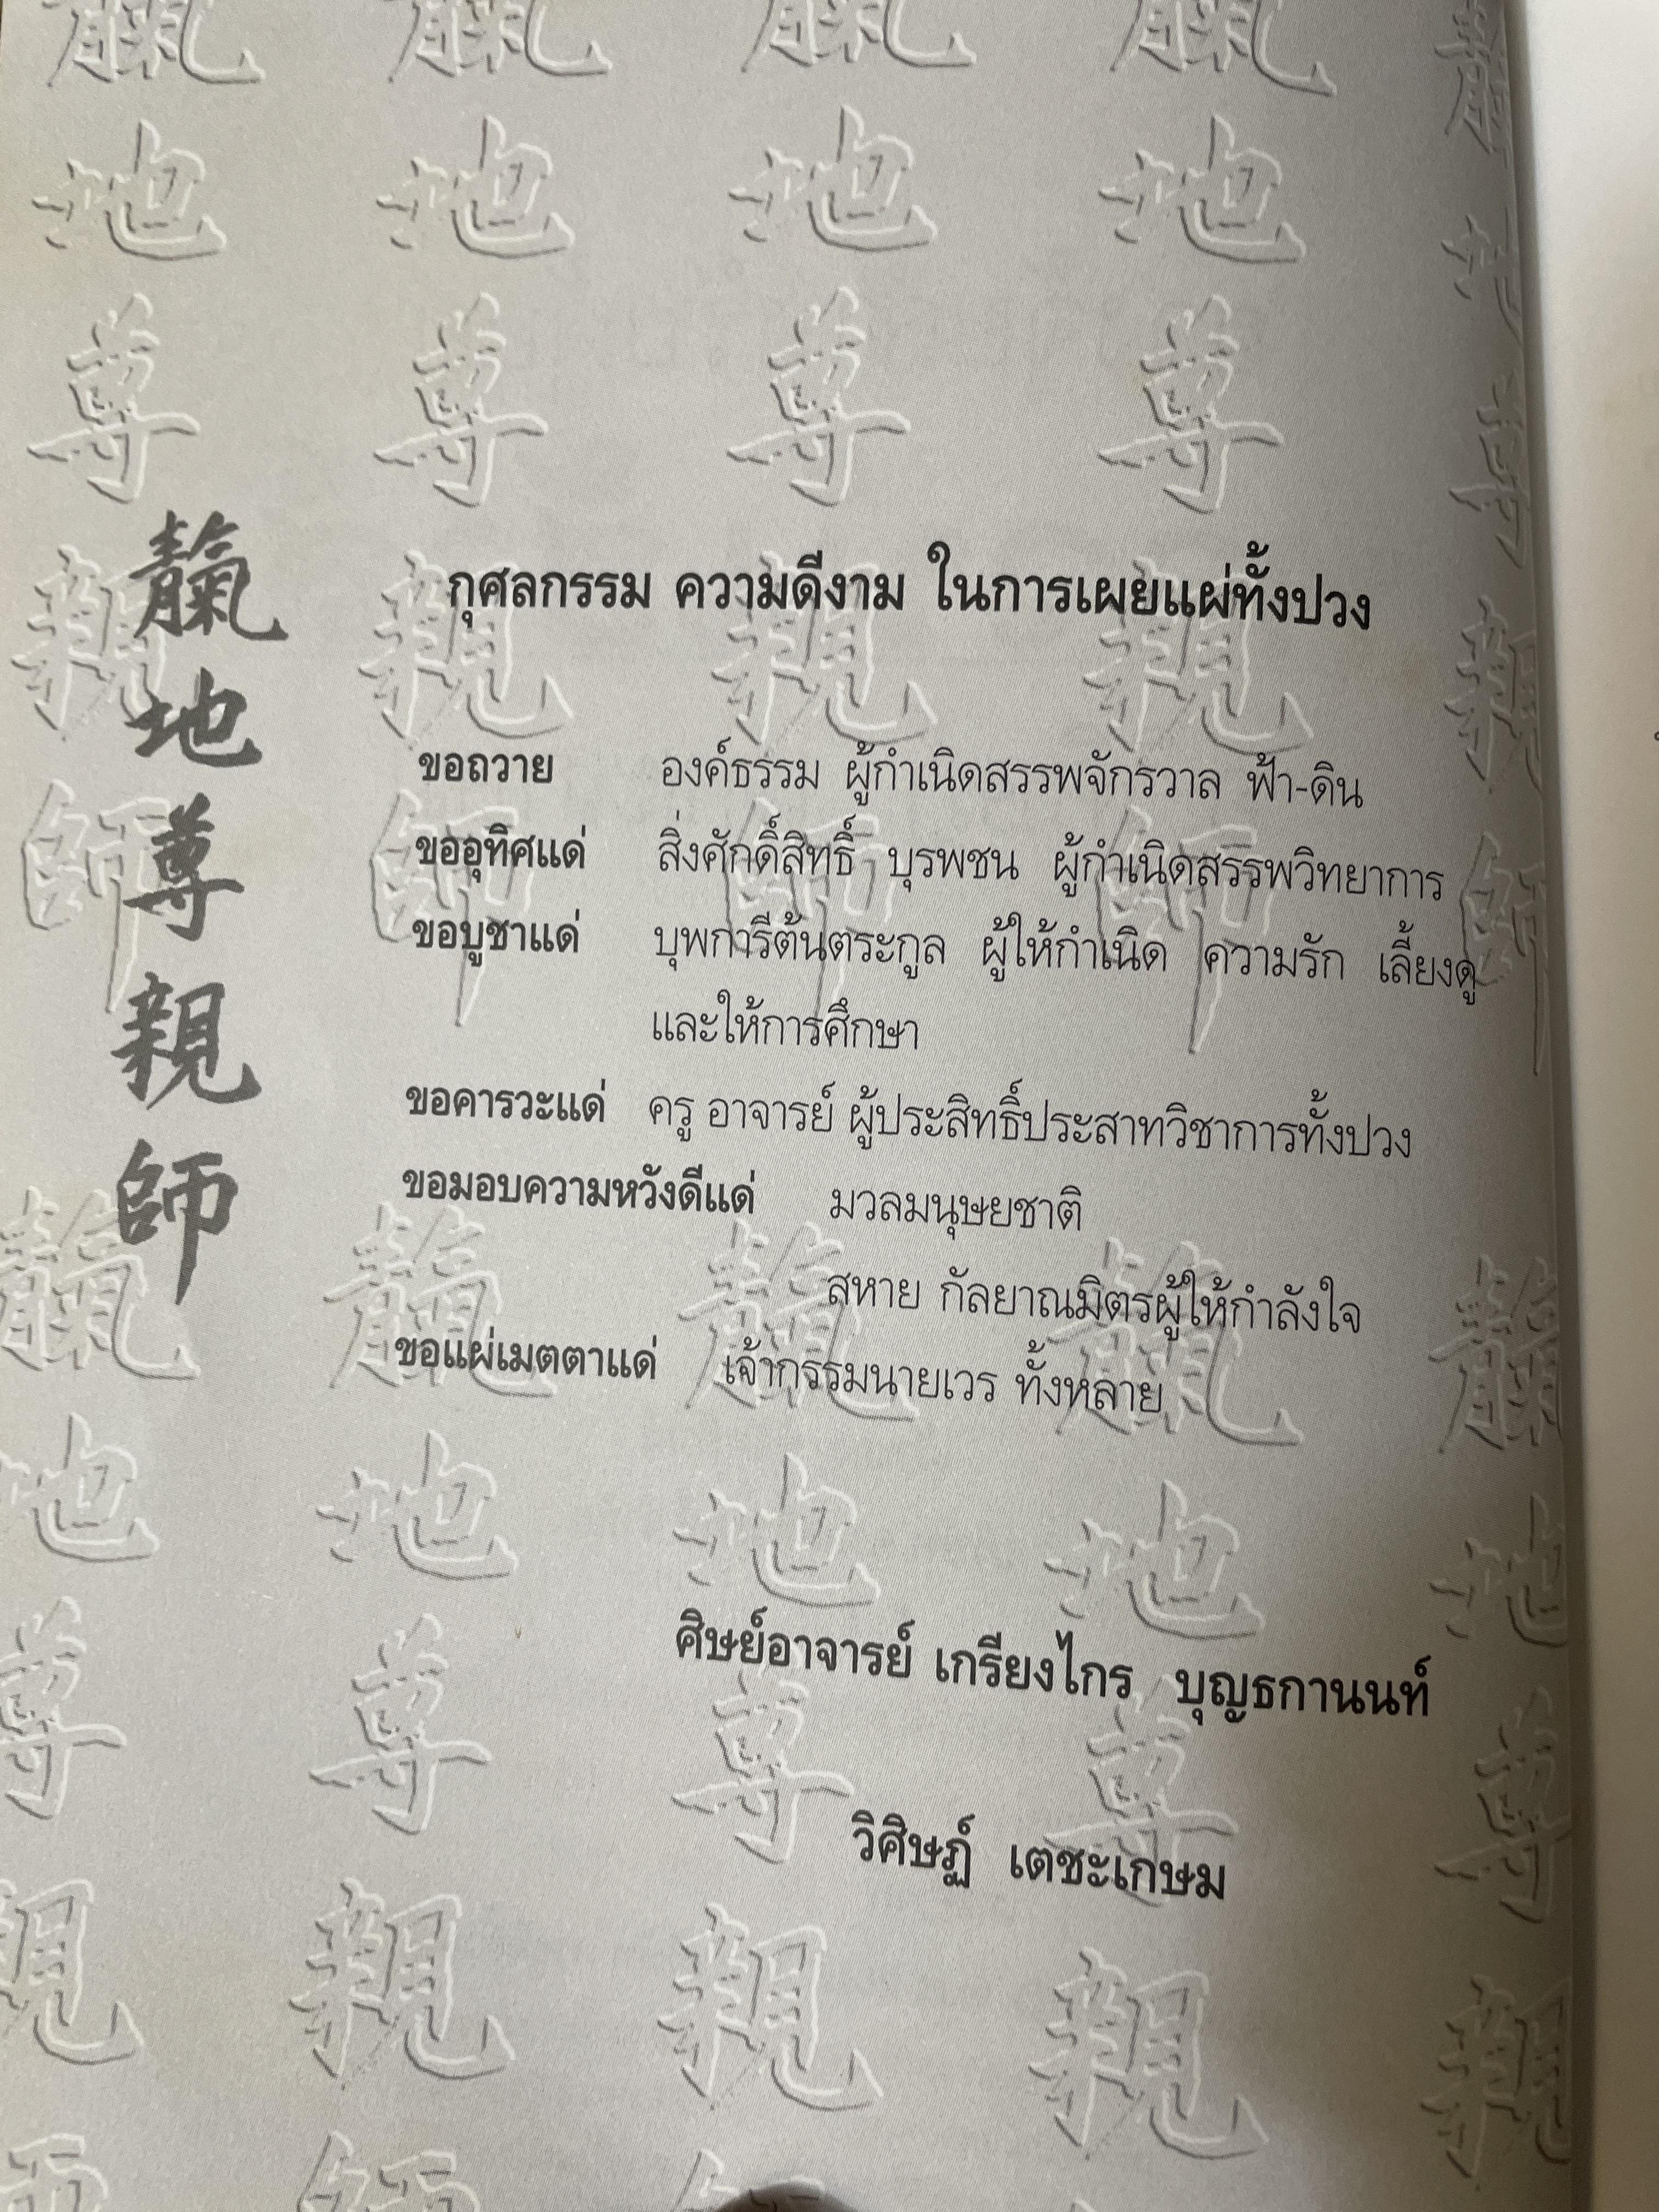 靝地尊親師
กุศลกรรม ความดีงาม ในการเผยแผ่ทั้งปวง
ขอถวาย องค์ธรรม ผู้กำเนิดสรรพจักรวาล ฟ้า-ดิน
ขออุทิศแด่ สิ่งศักดิ์สิทธิ์ บุรพชน ผู้กำเนิดสรรพวิทยาการ
ขอบูชาแด่ บุพการีต้นตระกูล ผู้ให้กำเนิด ความรัก เลี้ยงดู
และให้การศึกษา
ขอคารวะแด่ ครู อาจารย์ ผู้ประสิทธิ์ประสาทวิชาการทั้งปวง
ขอมอบความหวังดีแด่ มวลมนุษยชาติ
สหาย กัลยาณมิตรผู้ให้กำลังใจ
ขอแผ่เมตตาแด่ เจ้ากรรมนายเวร ทั้งหลาย
ศิษย์อาจารย์ เกรียงไกร บุญธกานนท์
วิศิษฏ์ เตชะเกษม